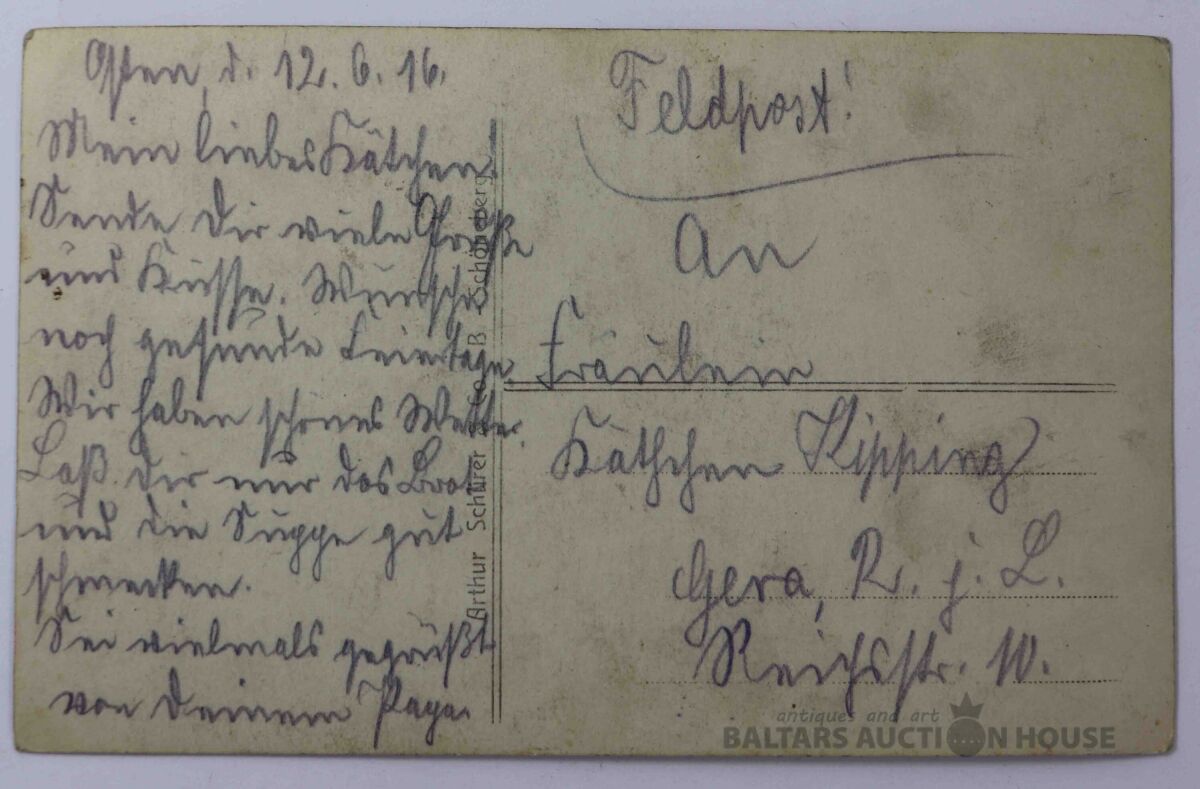 Osten, d. 12. 6. 16.
Mein liebes Kätchen!
Sende Dir viele Grüße
und Küsse. Wünsche
noch gesunde Feiertage.
Wir haben schönes Wetter.
Laß Dir nur das Brot
und die Suppe gut
schmecken.
Sei vielmals gegrüßt
von Deinem Papa.
Arthur Schürer & Co. B.-Schöneberg
Feldpost!
An
Fräulein
Käthchen Kipping
Gera, R. j. L.
Reichsstr. 10.
antiques and art
BALTARS AUCTION HOUSE